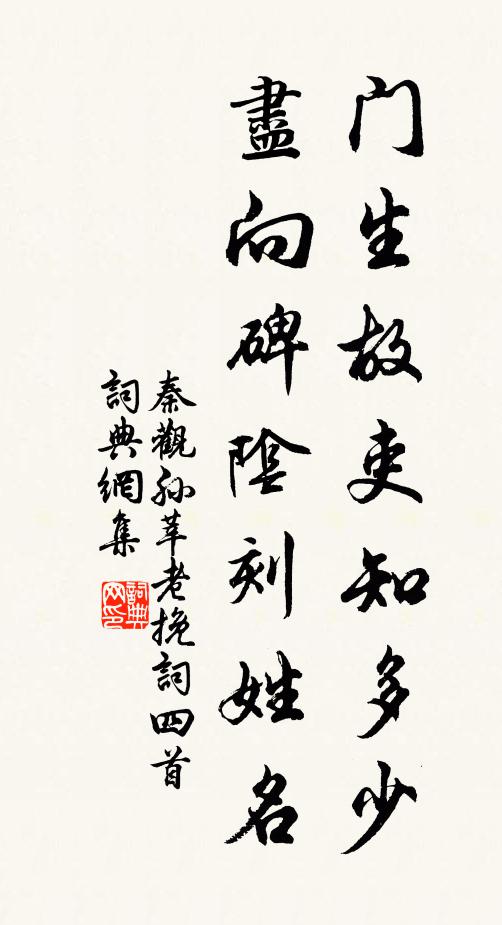 门生故吏知多少
盡向碑陰刻姓名
秦觀孙莘老挽詞四首
詞典網集
詞典网印